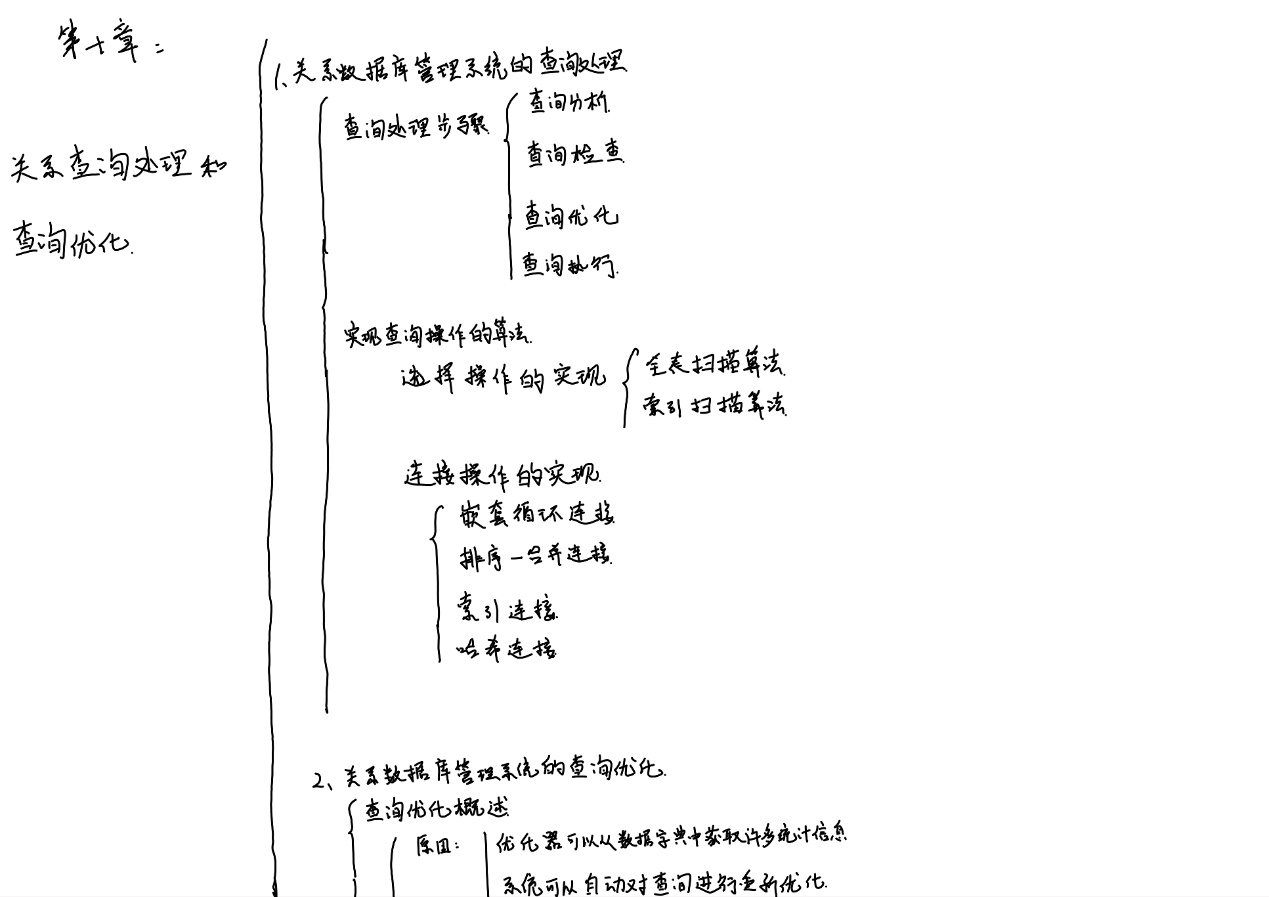 第十章：
关系查询处理和
查询优化.
1、关系数据库管理系统的查询处理
查询处理步骤.
查询分析.
查询检查.
查询优化
查询执行.
实现查询操作的算法.
选择操作的实现
全表扫描算法.
索引扫描算法.
连接操作的实现.
嵌套循环连接.
排序-合并连接.
索引连接.
哈希连接
2、关系数据库管理系统的查询优化.
查询优化概述.
原因：
优化器可以从数据字典中获取许多统计信息
系统可以自动对查询进行重新优化.